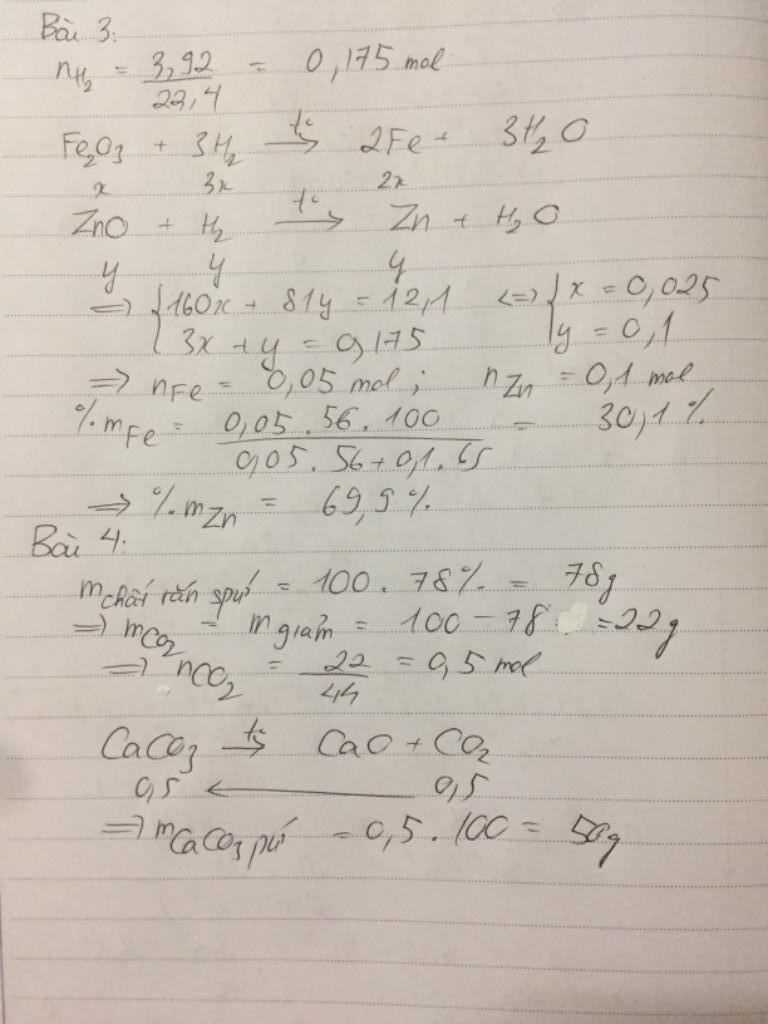 Bài 3:
nH₂ = 3,92/22,4 = 0,175 mol
Fe₂O₃ + 3H₂ –t°→ 2Fe + 3H₂O
x 3x 2x
ZnO + H₂ –t°→ Zn + H₂O
y y y
=> {160x + 81y = 12,1 <=> {x = 0,025
3x + y = 0,175 y = 0,1
=> nFe = 0,05 mol ; nZn = 0,1 mol
%mFe = 0,05 . 56 . 100 / 0,05 . 56 + 0,1 . 65 = 30,1 %
=> %mZn = 69,9 %
Bài 4:
m chất rắn spứ = 100 . 78% = 78g
=> mCO₂ = m giảm = 100 - 78 = 22g
=> nCO₂ = 22/44 = 0,5 mol
CaCO₃ –t°→ CaO + CO₂
0,5 ← 0,5
=> mCaCO₃ pứ = 0,5 . 100 = 50g